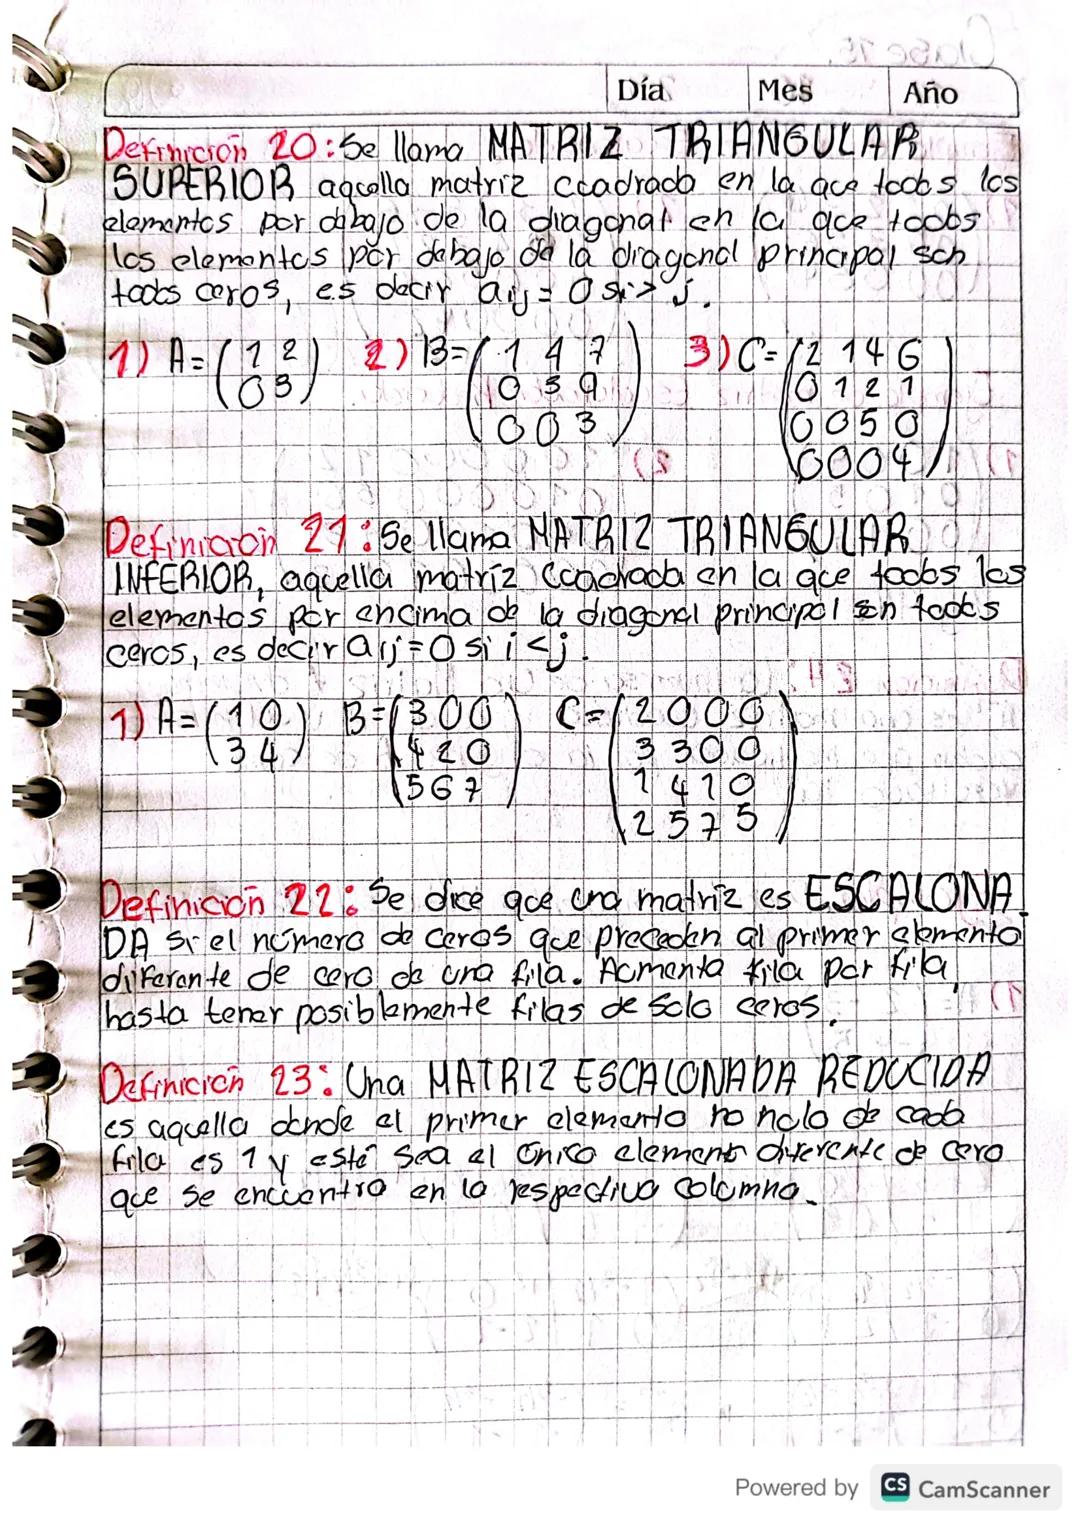 Día Mes Año
Definición 20: Se llama MATRIZ TRIANGULAR
SUPERIOR aquella matriz cuadrada en la que todos los
elementos por debajo de la diagonal en la que todos
los elementos por debajo de la diagonal principal son
todos ceros, es decir aij = 0 si > j.
1) A = (1 2 2) B = (1 4 7 3) C = (2 1 4 6
0 3) 0 5 9 0 1 2 1
0 0 3) 0 0 5 0
0 0 0 4)
Definición 21: Se llama MATRIZ TRIANGULAR
INFERIOR, aquella matríz cuadrada en la que todos los
elementos por encima de la diagonal principal son todos
ceros, es decir aij = 0 si i < j.
1) A = (1 0 B = (3 0 0 C = (2 0 0 0
3 4) 4 2 0 3 3 0 0
5 6 7) 1 4 1 0
2 5 7 5)
Definición 22: Se dice que una matríz es ESCALONA
DA si el número de ceros que preceden al primer elemento
diferente de cero de una fila. Aumenta fila por fila,
hasta tener posiblemente filas de solo ceros.
Definición 23: Una MATRIZ ESCALONADA REDUCIDA
es aquella donde el primer elemento no nulo de cada
fila es 1 y esté sea el único elemento diferente de cero
que se encuentra en la respectiva columna.
Powered by CS CamScanner